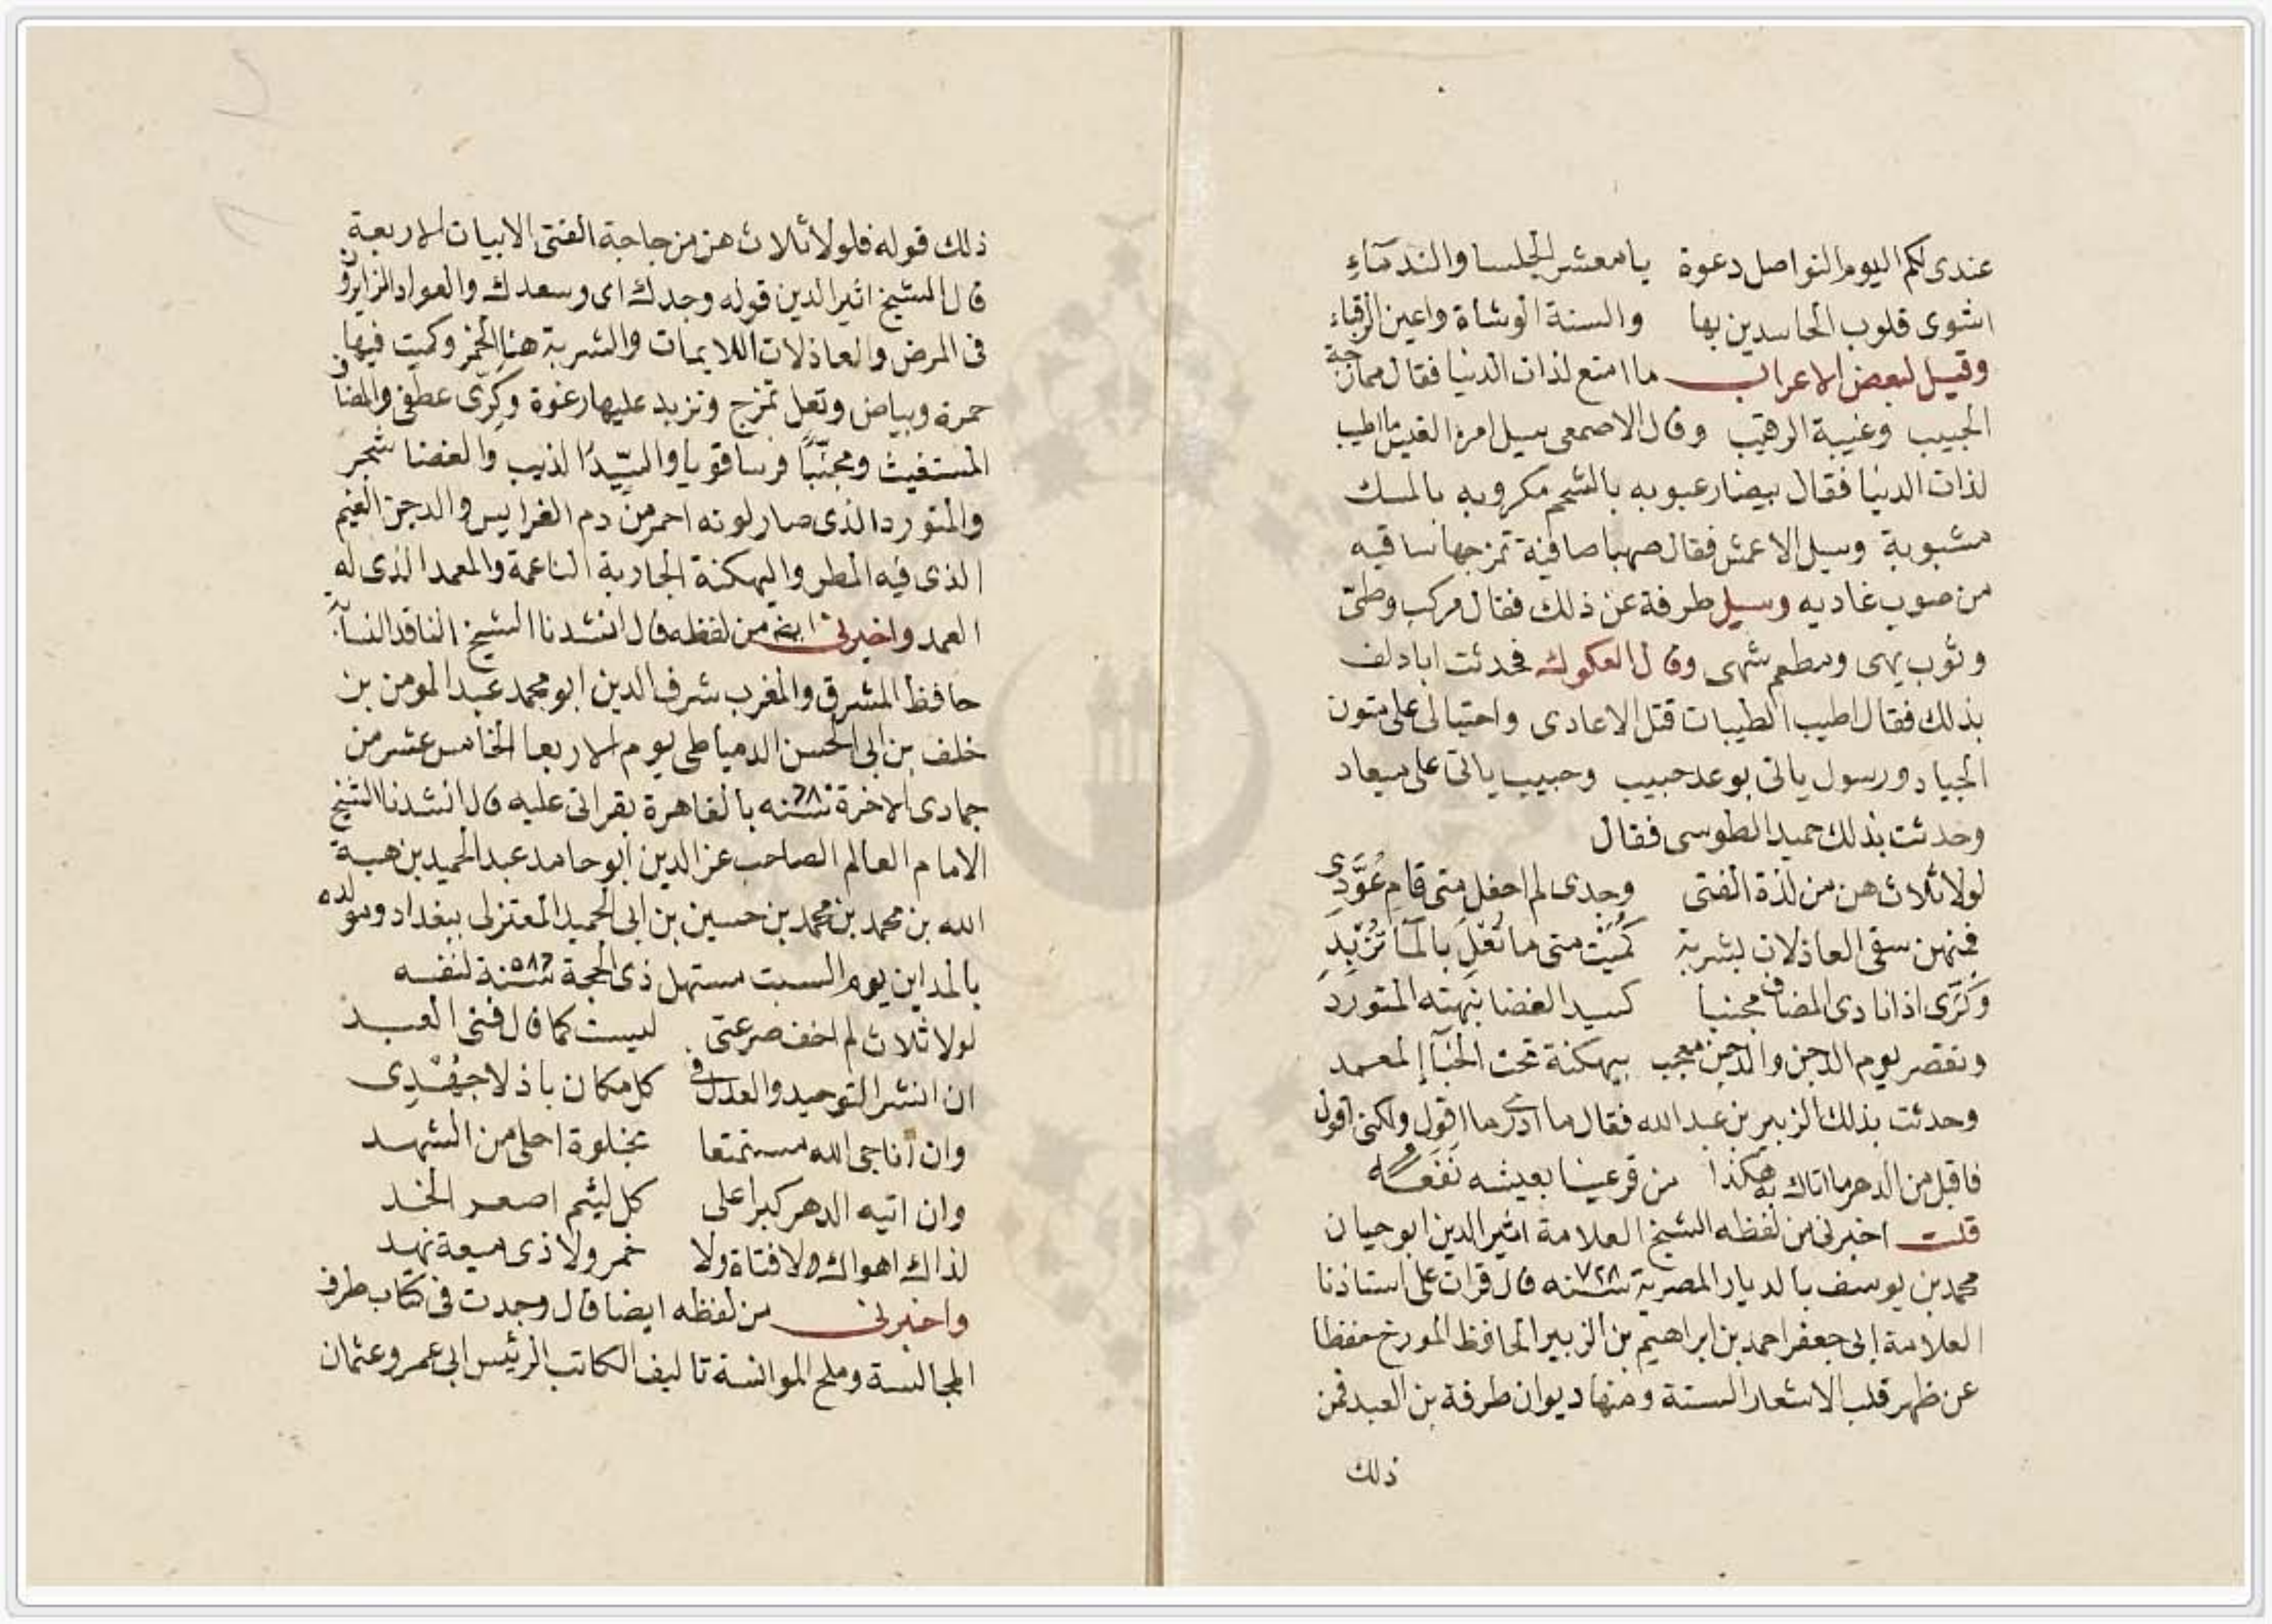 عندى لكم اليوم النواصل دعوة يا معشر الجلسا والندمآءِ
اشوى قلوب الحاسدين بها والسنة الوشاة واعين الرقباء
وقيل لبعض الاعراب ما امتع لذات الدنيا فقال ممازحة
الحبيب وغيبة الرقيب وقال الاصمعى سيل امرء القيس ما اطيب
لذات الدنيا فقال بيضا رعبوبه بالشحم مكروبه بالمسك
مشبوبة وسيل الاعمش فقال صهبا صافية تمزجها ساقيه
من صوب غاديه وسيل طرفة عن ذلك فقال مركب وطىّ
وثوب بهى ومطعم شهى وقال العكوك فحدثت ابا دلف
بذلك فقال اطيب الطيبات قتل الاعادى واختيالى على متون
الجياد ورسول ياتى بوعد حبيب وحبيب ياتى على ميعاد
وحدثت بذلك حميد الطوسى فقال
لولا ثلاث هن من لذة الفتى وجدى لم احفل متى قام عُوَّدِى
فمنهن سقى العاذلات بشربة كُمَيْت متى ما تُعْلَ بالمآ تُزْبِدِ
وَكَرّى اذا نادى المضاف مجنبا كسيد الغضا نبهته المتورد
وتقصر يوم الدجن والدجن معجب ببهكنة تحت الخبآإ المعمد
وحدثت بذلك الزبير بن عبد الله فقال ما ادرى ما اقول ولكنى اقول
فاقبل من الدهر ما اتاك به هكذا من قر عينا بعيشه نَفَعَهُ
قلت اخبرنى من لفظه الشيخ العلامة اثير الدين ابو حيان
محمد بن يوسف بالديار المصرية سنة ٧٢٨ قال قرات على استاذنا
العلامة ابى جعفر احمد بن ابراهيم بن الزبير الحافظ المورخ حفظا
عن ظهر قلب الاشعار الستة ومنها ديوان طرفة بن العبد فمن
ذلك
ذلك قوله فلولا ثلاث هن من حاجة الفتى الابيات الاربعة
قال الشيخ اثير الدين قوله وجدك اى وسعدك والعواد الزايرون
فى المرض والعاذلات اللايمات والشربة هنا الخمر وكميت فيها
حمرة وبياض وتعل تمزج وتزبد عليها رغوة وكرّى عطفى والمضاف
المستغيث ومجنّباً فرسا قويا والسِّيدُ الذيب والغضا شجر
والمتورد الذى صار لونه احمر من دم الفرايس والدجن الغيم
الذى فيه المطر والبهكنة الجارية الناعمة والمعمد الذى له
العمد واخبرنى ايضا من لفظه قال انشدنا الشيخ الناقد النسابة
حافظ المشرق والمغرب شرف الدين ابو محمد عبد المومن بن
خلف بن ابى الحسن الدمياطى يوم الاربعا الخامس عشر من
جمادى الاخرة سنة بالقاهرة بقراتى عليه قال انشدنا الشيخ
الامام العالم الصاحب عز الدين ابو حامد عبد الحميد بن هبة
الله بن محمد بن محمد بن حسين بن ابى الحميد المعتزلى ببغداد ومولده
بالمداين يوم السبت مستهل ذى الحجة سنة ٥٨٦ لنفسه
لولا ثلاث لم اخف صرعتى ليست كما قال فتى العبد
ان انشر التوحيد والعدل فى كل مكان باذلا جهْدِى
وان اناجى الله مستمتعا بخلوة احلى من الشهد
وان اتيه الدهر كبرا على كل لئيم اصعر الخد
لذاك اهواك ولا فتاة ولا خمر ولا ذى ميعة نهد
واخبرنى من لفظه ايضا قال وجدت فى كتاب طرف
المجالسة وملح الموانسة تاليف الكاتب الرئيس ابى عمرو عثمان